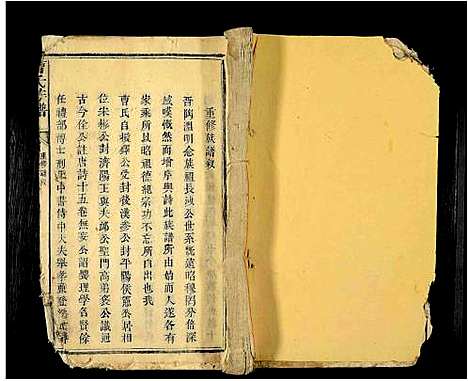 重修族譜敘
晉陶淵明念族長沙公世系遠昭穆既分倍深
感嘆慨然而增序與詩此族譜所由始而人遂各有
家乘所以昭祖德緬宗功不忘所自出也我
曹氏自振鐸公受封後漢參公封平陽侯蕭公居相
位宋彬公封濟陽王與夫䘏公聖門高弟霎公議冠
古今徐公註唐詩十五卷無妄公詔襲理學名賢餘
任禮部博士刑工中書侍中大夫舉孝廉登
曹氏宗譜
重修